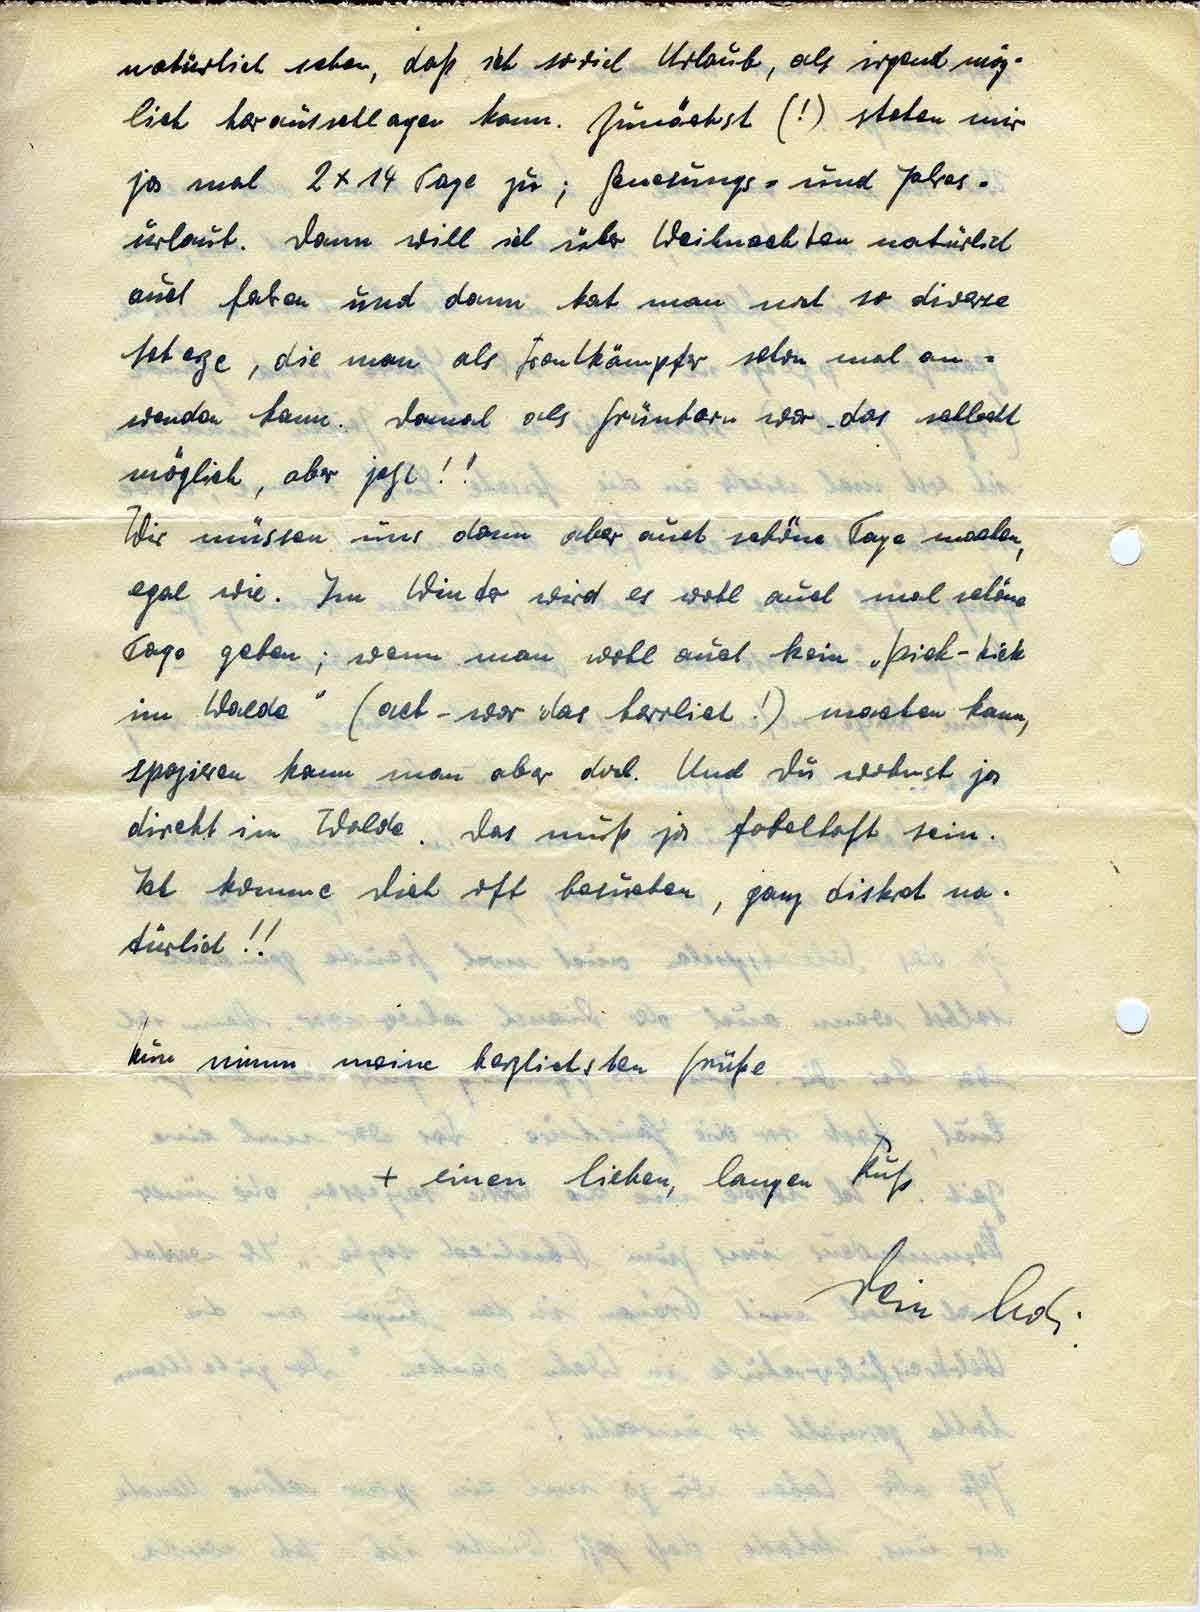 natürlich sehen, daß ich soviel Urlaub, als irgend mög-
lich herausschlagen kann. Zunächst (!) stehen mir
ja mal 2 x 14 Tage zu; Genesungs- und Jahres-
urlaub. Dann will ich über Weihnachten natürlich
auch fahren und dann hat man noch so diverse
, die man als Frontkämpfer schon mal an-
wenden kann. Damal als Grünhorn war das schlecht
möglich, aber jetzt!!
Wir müssen uns dann aber auch schöne Tage machen,
egal wie. Im Winter wird es wohl auch mal schöne
Tage geben; wenn man wohl auch kein „Pick-Nick
im Walde" (ach - war das herrlich!) machen kann,
spazieren kann man aber doch. Und Du wohnst ja
direkt im Walde. Das muß ja fabelhaft sein.
Ich komme Dich oft besuchen, ganz diskret na-
türlich!!
Nun nimm meine herzlichsten Grüße
+ einen lieben, langen Kuß
Dein